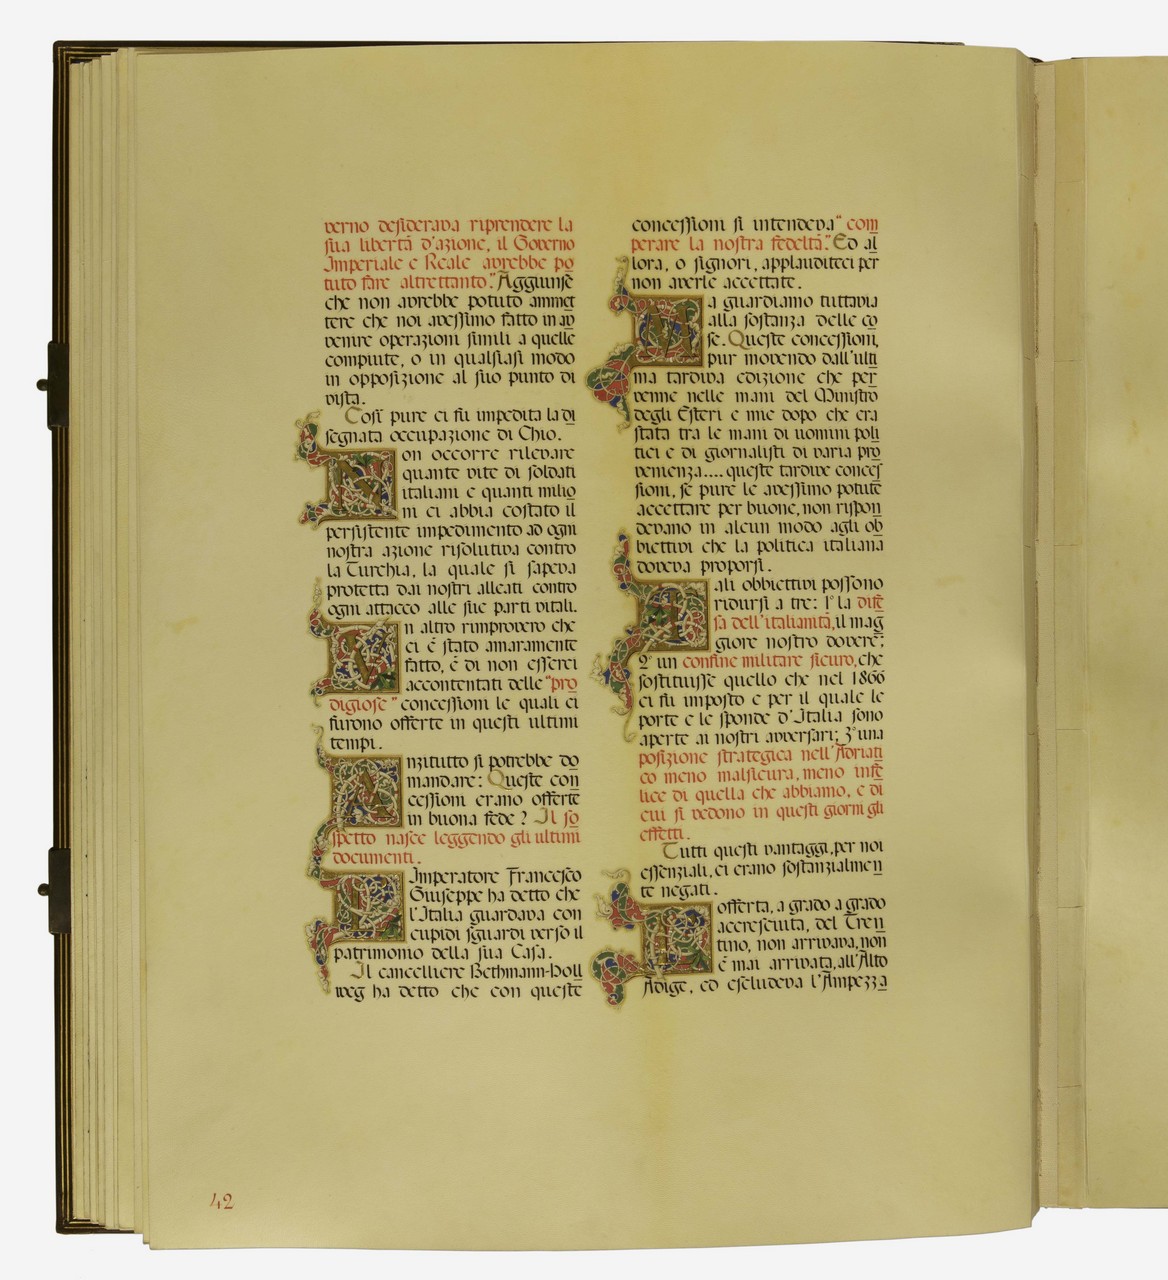 verno desiderava riprendere la
sua libertà d'azione, il Governo
Imperiale e Reale avrebbe po
tuto fare altrettanto." Aggiunse
che non avrebbe potuto ammet
tere che noi avessimo fatto in av
venire operazioni simili a quelle
compiute, o in qualsiasi modo
in opposizione al suo punto di
vista.
Così pure ci fu impedita la di
segnata occupazione di Chio.
Non occorre rilevare
quante vite di soldati
italiani e quanti milio
ni ci abbia costato il
persistente impedimento ad ogni
nostra azione risolutiva contro
la Turchia, la quale si sapeva
protetta dai nostri alleati contro
ogni attacco alle sue parti vitali.
Un altro rimprovero che
ci è stato amaramente
fatto, è di non esserci
accontentati delle "pro
digiose" concessioni le quali ci
furono offerte in questi ultimi
tempi.
Anzitutto si potrebbe do
mandare: Queste con
cessioni erano offerte
in buona fede? Il so
spetto nasce leggendo gli ultimi
documenti.
L'Imperatore Francesco
Giuseppe ha detto che
l'Italia guardava con
cupidi sguardi verso il
patrimonio della sua Casa.
Il cancelliere Bethmann-Holl
weg ha detto che con queste
concessioni si intendeva "com
perare la nostra fedeltà". Ed al
lora, o signori, applauditeci per
non averle accettate.
Ma guardiamo tuttavia
alla sostanza delle co
se. Queste concessioni,
pur movendo dall'ulti
ma tardiva edizione che per
venne nelle mani del Ministro
degli Esteri e mie dopo che era
stata tra le mani di uomini poli
tici e di giornalisti di varia pro
venienza.... queste tardive conces
sioni, se pure le avessimo potute
accettare per buone, non rispon
devano in alcun modo agli ob
biettivi che la politica italiana
doveva proporsi.
Tali obbiettivi possono
ridursi a tre: 1° la dife
sa dell'italianità, il mag
giore nostro dovere;
2° un confine militare sicuro, che
sostituisse quello che nel 1866
ci fu imposto e per il quale le
porte e le sponde d'Italia sono
aperte ai nostri avversari; 3° una
posizione strategica nell'Adriati
co meno malsicura, meno infe
lice di quella che abbiamo, e di
cui si vedono in questi giorni gli
effetti.
Tutti questi vantaggi, per noi
essenziali, ci erano sostanzialmen
te negati.
L'offerta, a grado a grado
accresciuta, del Tren
tino, non arrivava, non
è mai arrivata, all'Alto
Adige, ed escludeva l'Ampezza
42